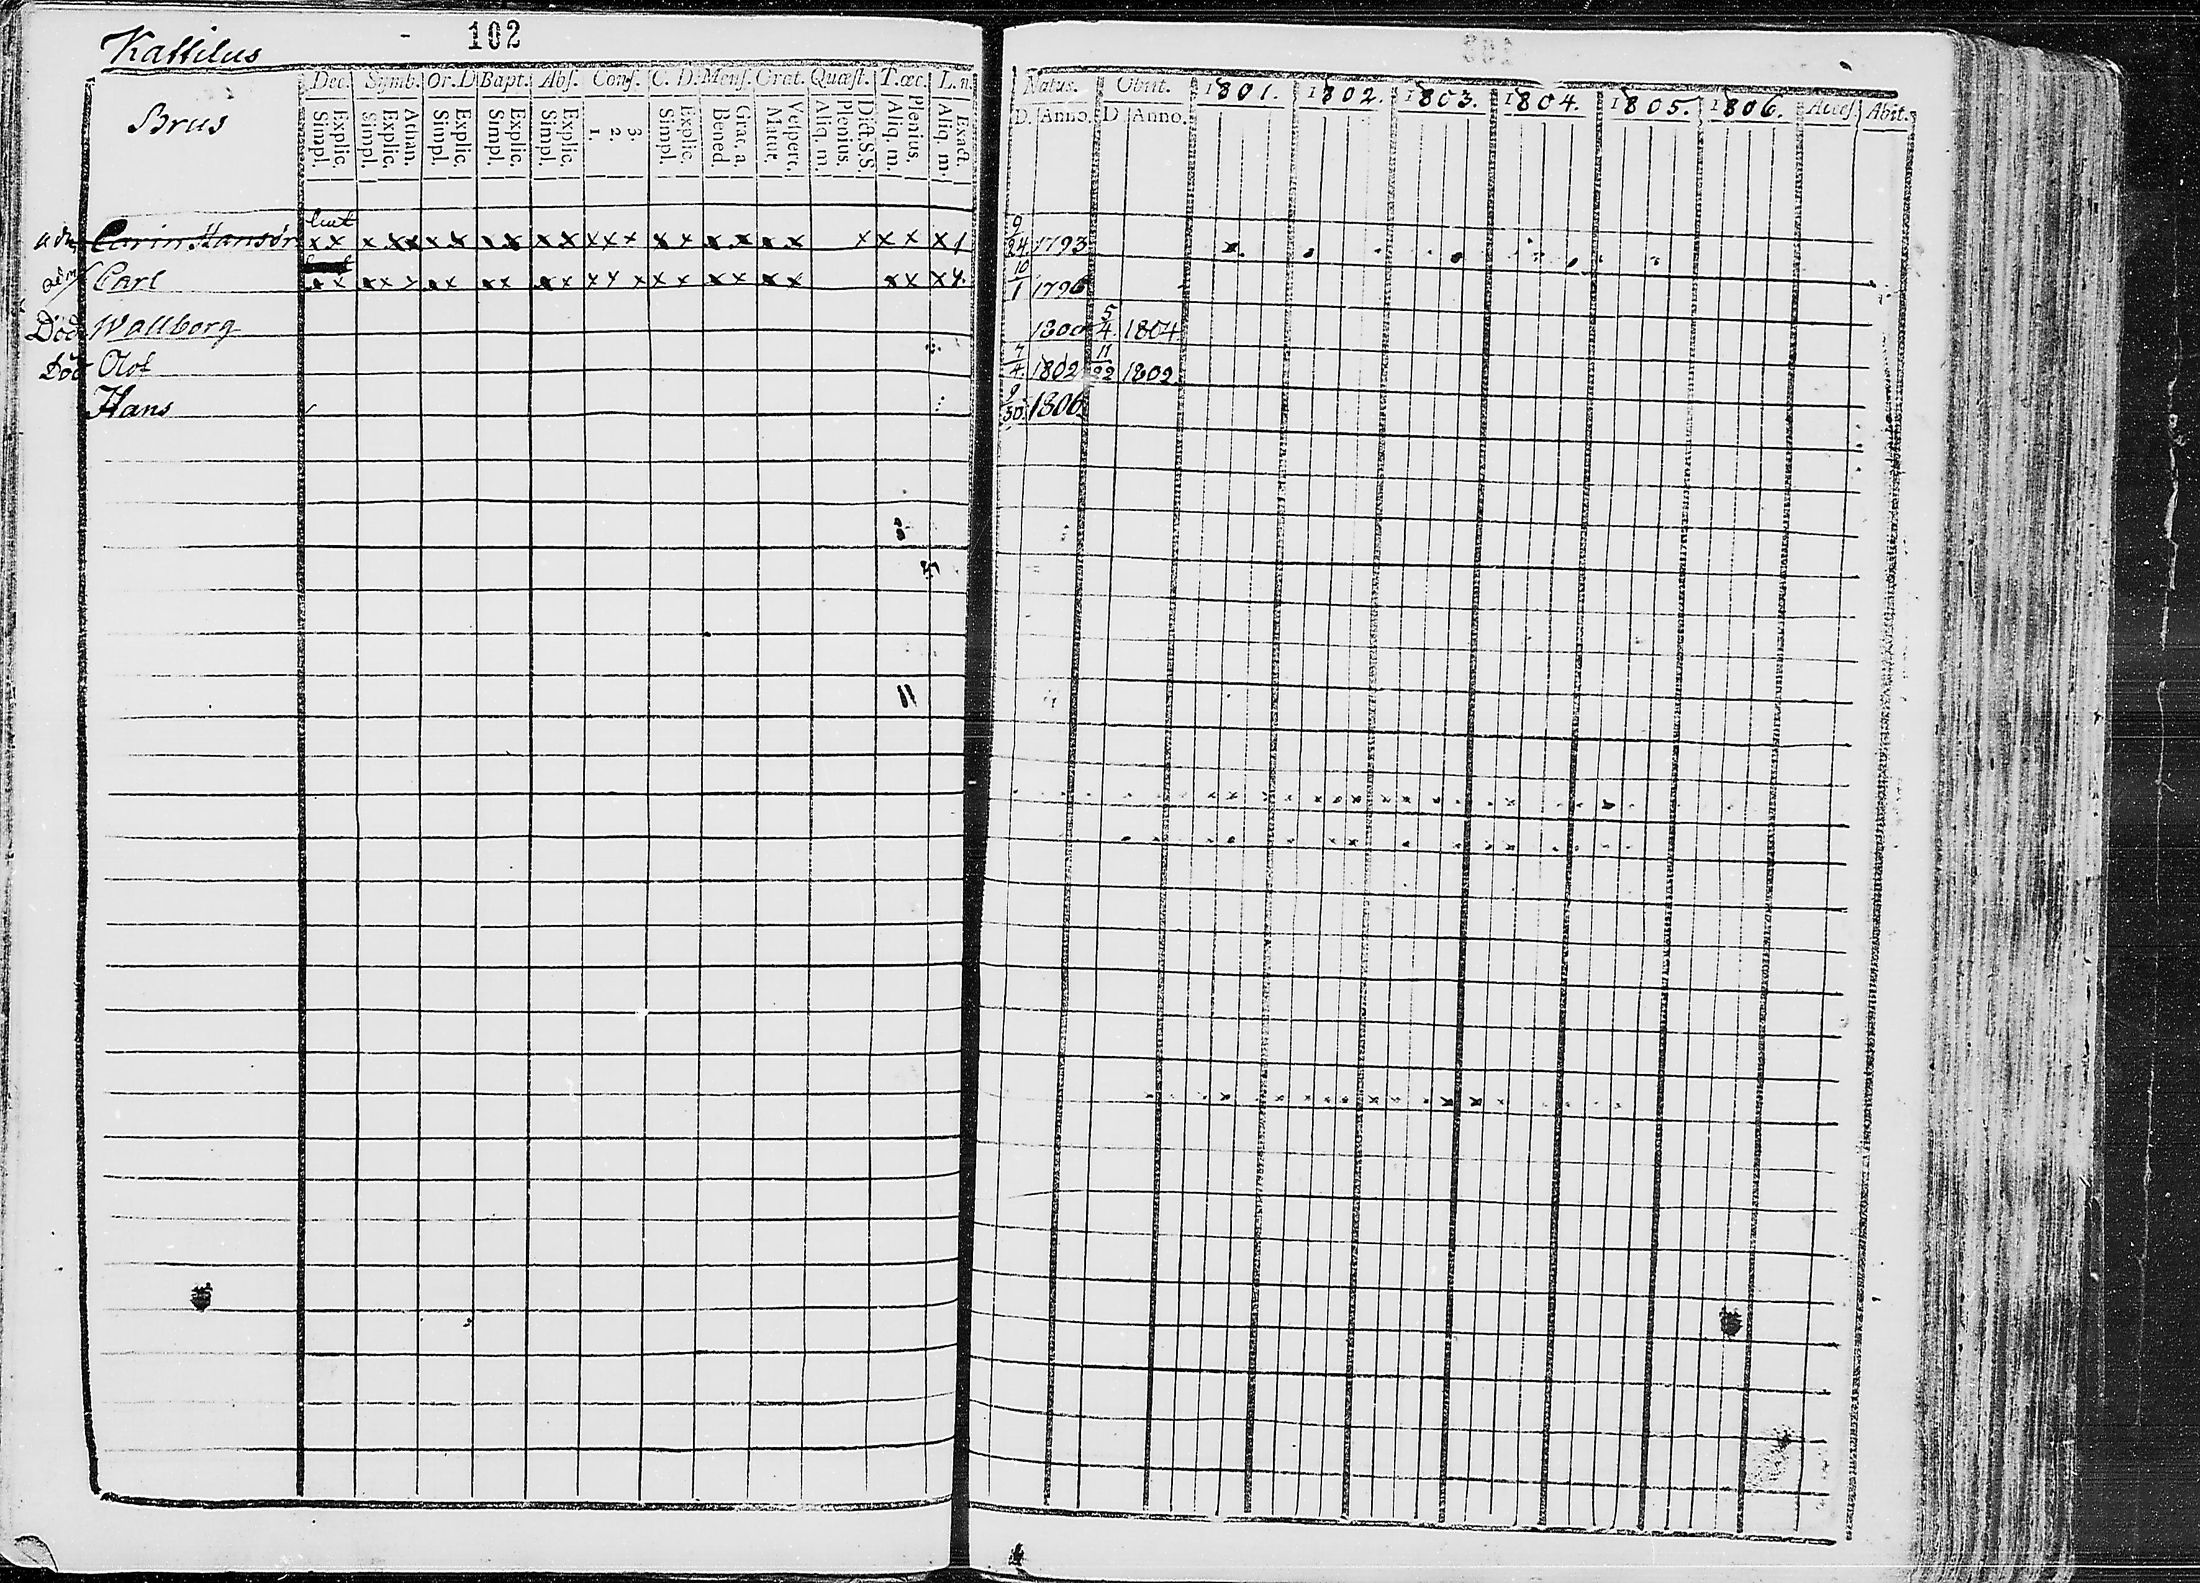 102
Kattilus
Brus
Dec. Symb. Or. D Bapt. Abs. Conf. C. D. Mens. Orat. Quæst. T. œc. L. n.
Simpl. Explic. Simpl. Explic. Athan. Simpl. Explic. Simpl. Explic. Simpl. Explic. 1. 2. 3. Simpl. Explic. Bened. Grac. a. Matut. Vespert. Aliq. m. Plenius. Dict. S.S. Aliq. m. Plenius. Aliq. m. Exact.
Natus. Obiit. 1801. 1802. 1803. 1804. 1805. 1806. Access. Abit.
D. Anno. D. Anno.
adm Carin Hansdr 9/24. 1793
adm Carl 10/1 1796
Död Wallborg 1800 5/4. 1804.
Död Olof 7/4. 1802 11/22 1802
Hans 9/30. 1806.